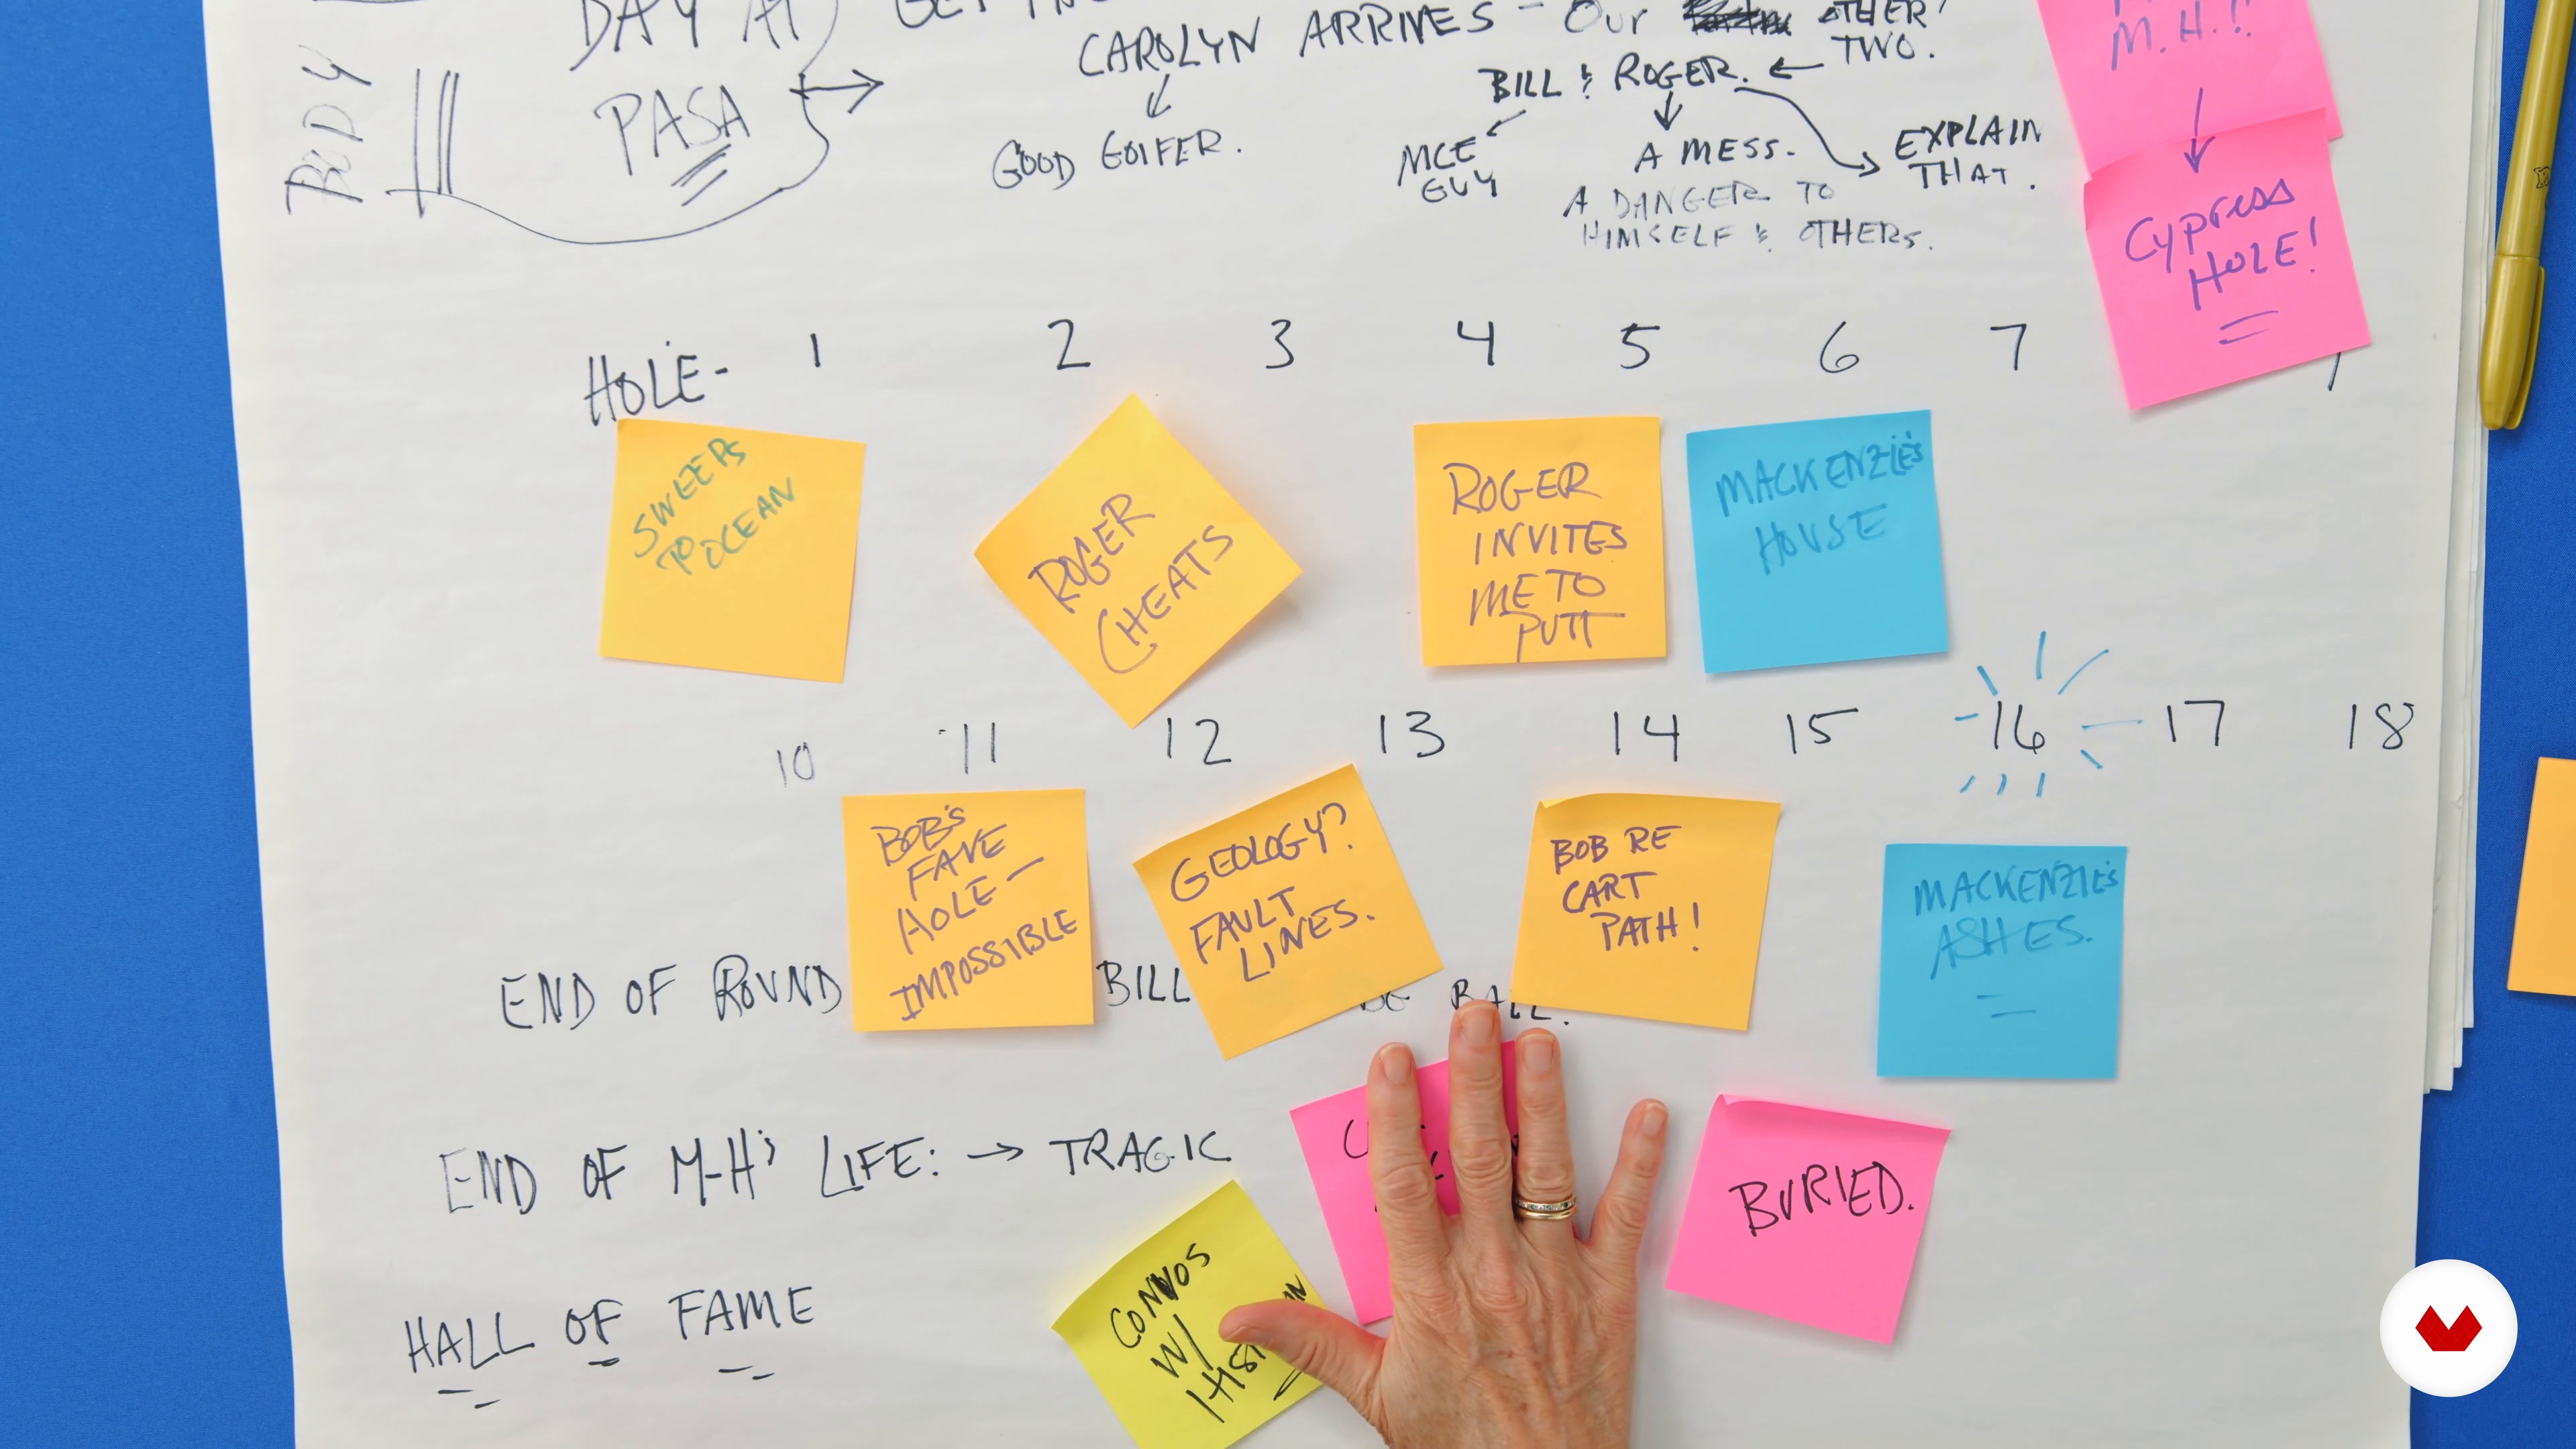 BODY
DAY AT
PASA
CAROLYN ARRIVES - OUR OTHER
TWO.
GOOD GOLFER.
BILL & ROGER.
NICE
GUY
A MESS.
A DANGER TO
HIMSELF & OTHERS.
EXPLAIN
THAT.
M.H.!!
Cypress
HOLE!
HOLE- 1 2 3 4 5 6 7
SWEEPS
TO OCEAN
ROGER
CHEATS
ROGER
INVITES
ME TO
PUTT
MACKENZIE'S
HOUSE
10 11 12 13 14 15 16 17 18
BOB'S
FAVE
HOLE-
IMPOSSIBLE
GEOLOGY?
FAULT
LINES.
BOB RE
CART
PATH!
MACKENZIE'S
ASHES.
END OF ROUND BILL BALL.
END OF M-H'S LIFE: → TRAGIC
BURIED.
HALL OF FAME
CONVOS
W/